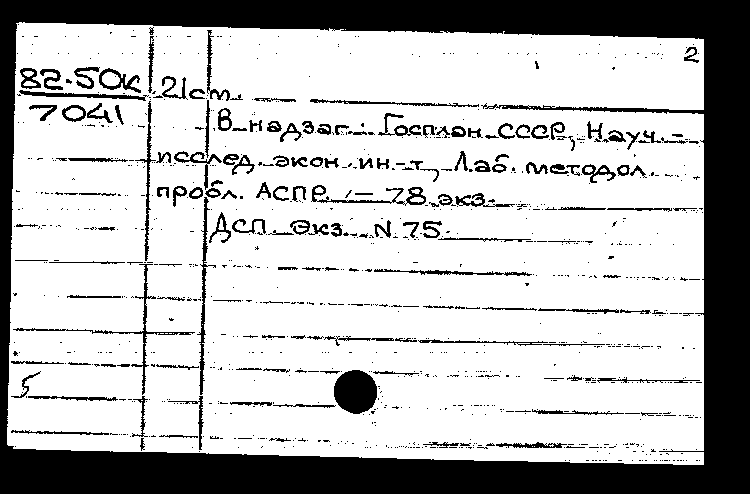 2
82-50к 21 см.
7041
В надзаг.: Госплан СССР, Науч.-
исслед. экон. ин-т, Лаб. методол.
пробл. АСПР. — 78 экз.
ДСП. Экз. N 75.
5